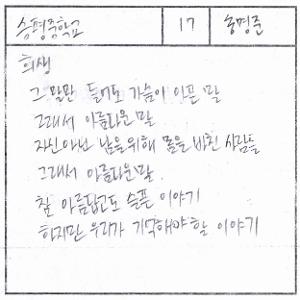 승평중학교 17 송명준
희생
그 말만 들어도 가슴이 아픈 말
그래서 아름다운 말
자신 아닌 남을 위해 몸을 바친 사람들
그래서 아름다운 말.
참 아름답고도 슬픈 이야기
하지만 우리가 기억해야 할 이야기